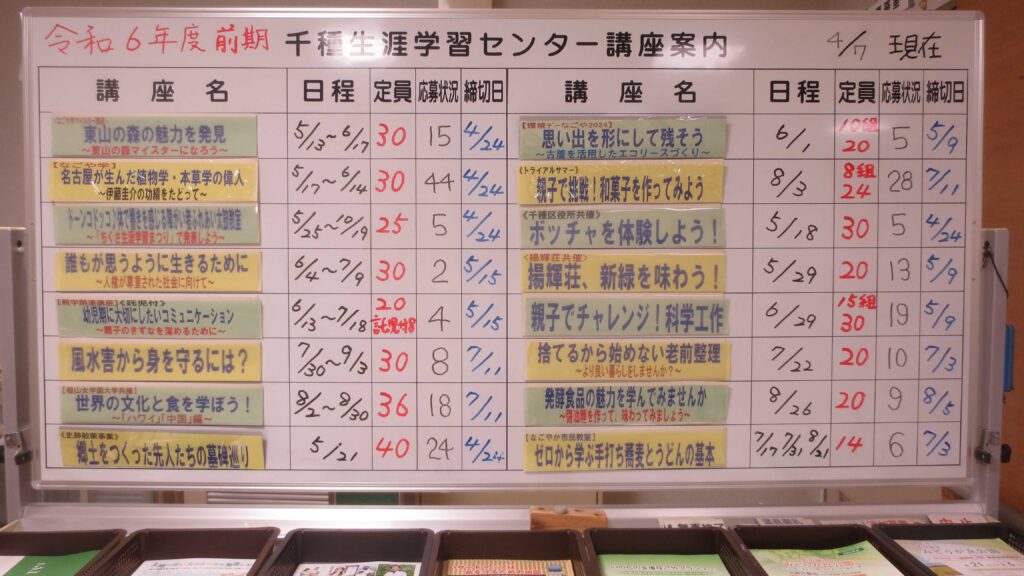 令和6年度前期 千種生涯学習センター講座案内 4/7 現在
講座名 日程 定員 応募状況 締切日
東山の森の魅力を発見
～東山の森マイスターになろう～
5/13~6/17 30 15 4/24
【なごや学】
名古屋が生んだ植物学・本草学の偉人
～伊藤圭介の功績をたどって～
5/17~6/14 30 44 4/24
ドーンコドッコ♪体で響きを感じる障がい者ふれあい太鼓教室
～「ちくさ生涯学習まつり」で発表しよう～
5/25~10/19 25 5 4/24
誰もが思うように生きるために
～人権が尊重された社会に向けて～
6/4~7/9 30 2 5/15
【親学関連講座】《託児付》
幼児期に大切にしたいコミュニケーション
～親子のきずなを深めるために～
6/13~7/18 20 託児付8 4 5/15
風水害から身を守るには？
7/30~9/3 30 8 7/11
【椙山女学園大学共催】
世界の文化と食を学ぼう！
～「ハワイ」「中国」編～
8/2~8/30 36 18 7/11
《史跡散策事業》
郷土をつくった先人たちの墓碑巡り
5/21 40 24 4/24
講座名 日程 定員 応募状況 締切日
【環境デーなごや2024】
思い出を形にして残そう
～古着を活用したエコリースづくり～
6/1 10組 20 5 5/9
《トライアルサマー》
親子で挑戦！和菓子を作ってみよう
8/3 8組 24 28 7/11
《千種区役所共催》
ボッチャを体験しよう！
5/18 30 5 4/24
《揚輝荘共催》
揚輝荘、新緑を味わう！
5/29 20 13 5/9
親子でチャレンジ！科学工作
6/29 15組 30 19 5/9
捨てるから始めない老前整理
～より良い暮らしをしませんか？～
7/22 20 10 7/3
発酵食品の魅力を学んでみませんか
～醤油麹を作って、味わってみましょう～
8/26 20 9 8/5
【なごやか市民教室】
ゼロから学ぶ手打ち蕎麦とうどんの基本
7/17 7/31 8/21 14 6 7/3